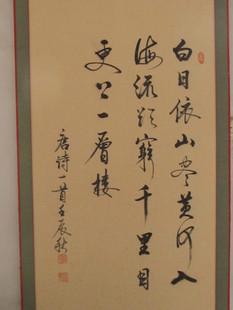 白日依山尽黄河入
海流欲穷千里目
更上一層楼
唐诗一首壬辰秋